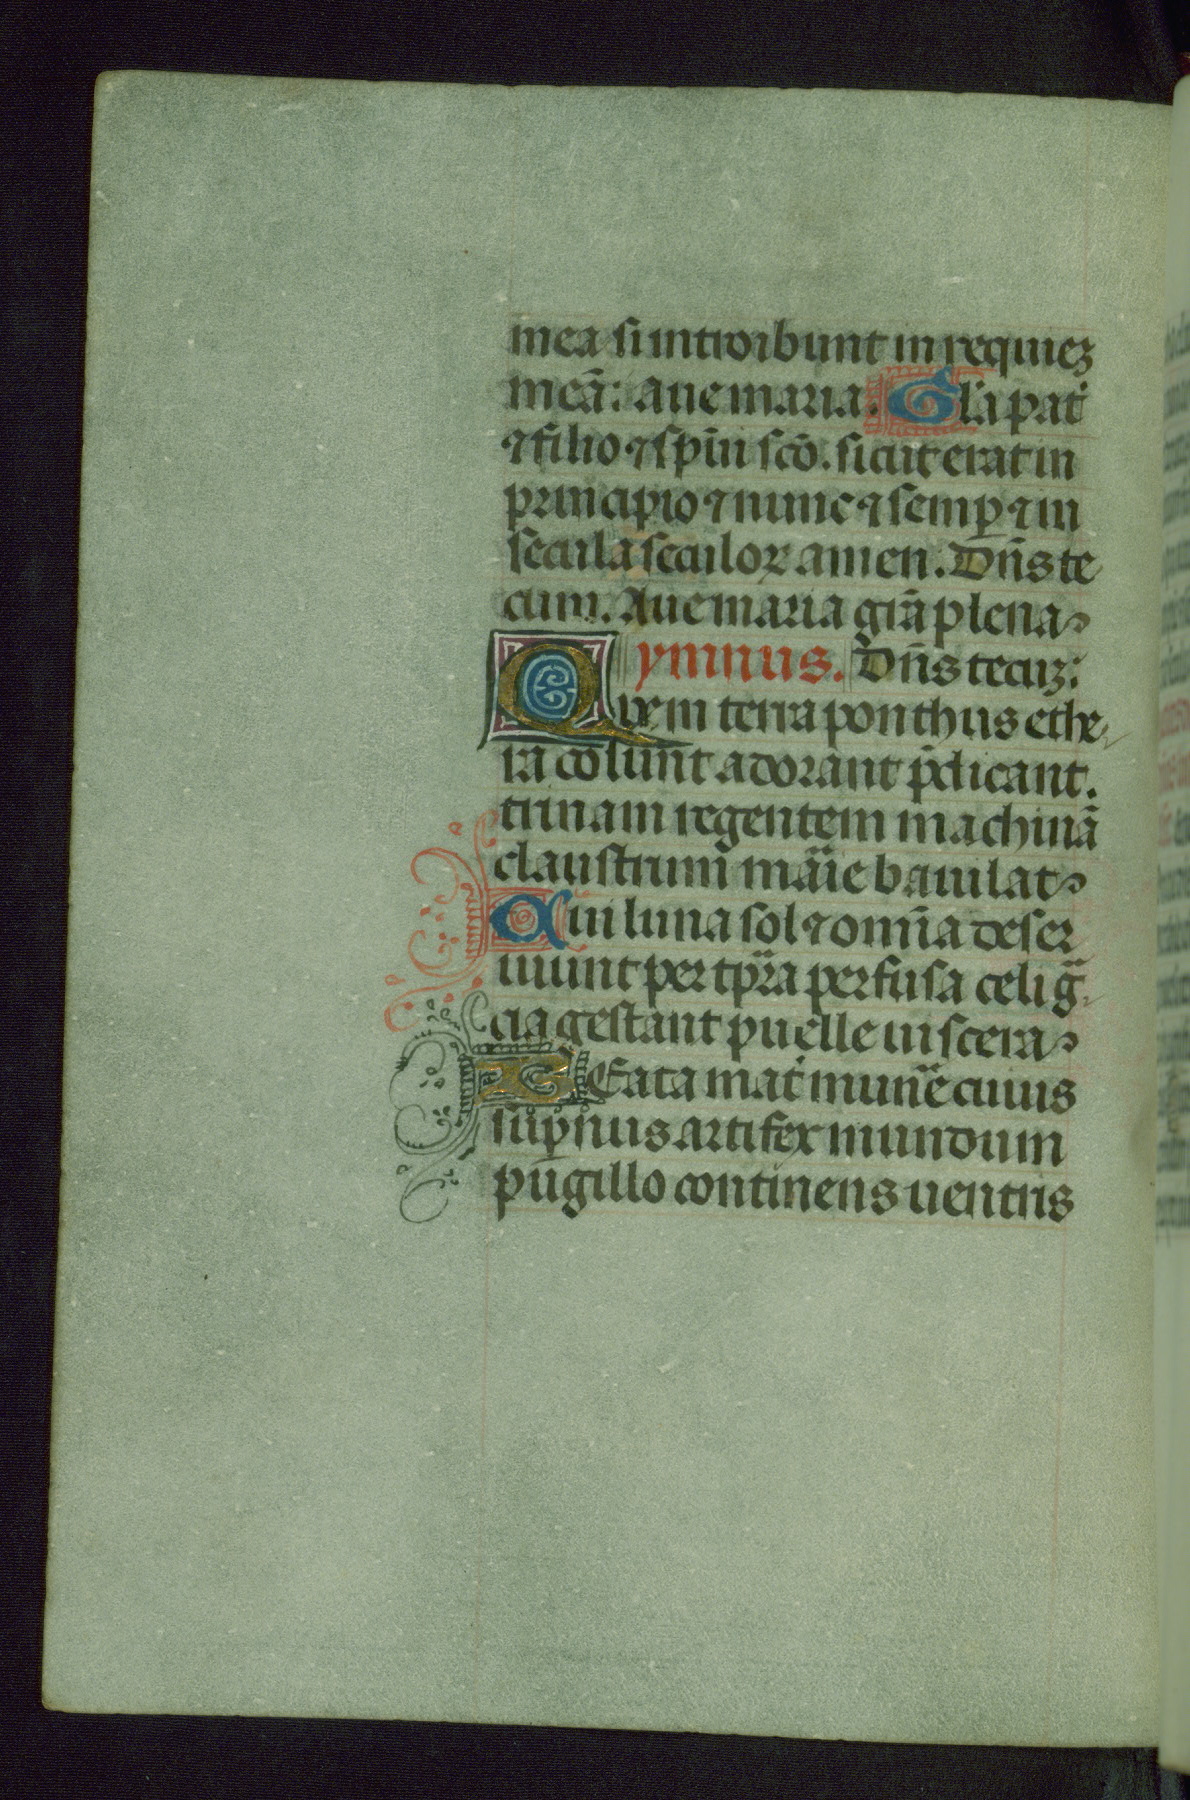 mea si introibunt in requieʒ
meā: aue maria. Gl'a pat'
⁊ filio ⁊ sp̄ui scō. sicut erat in
principio ⁊ nunc ⁊ semꝑ ⁊ in
secula seculoꝝ amen. Dn̄s te
cum. Aue maria grā plena
ymnus. Dn̄s tecuʒ:
Quem terra ponthus ethe
ra colunt adorant p̄dicant.
trinam regentem machinā
claustrum marie baiulat
Cui luna sol ⁊ omīa deser
uiunt per tp̄ra perfusa celi gr̄a
cia gestant puelle uiscera
BEata mat' mun̄e cuius
suꝑnus artifex mundum
pugillo continens uentris